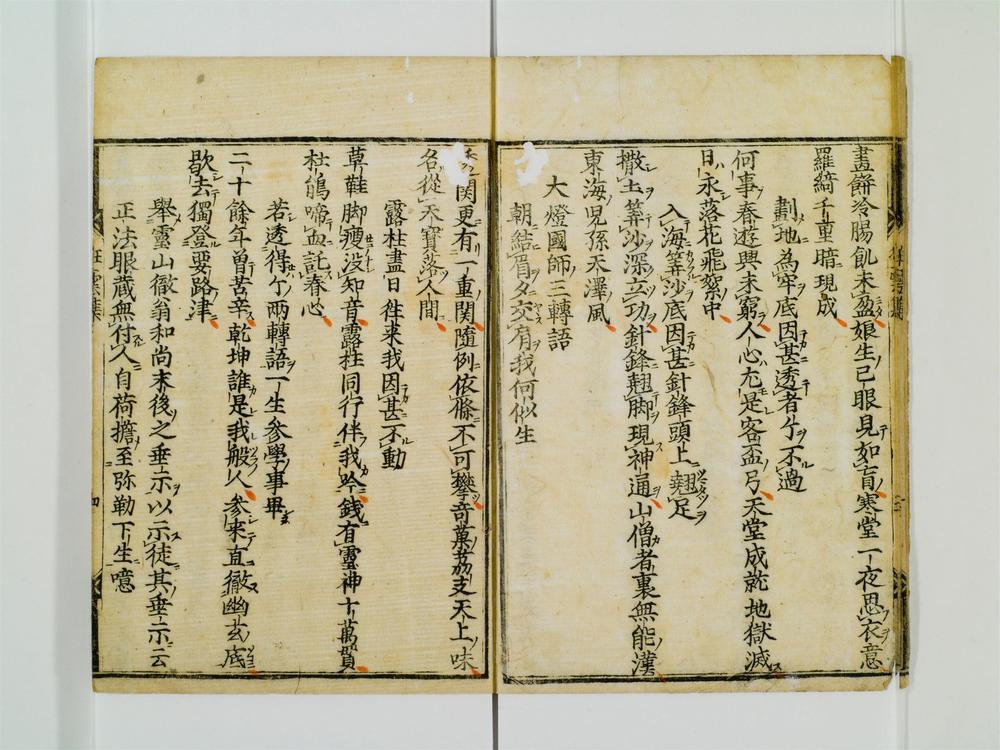 畫餅冷腸飢未盈娘生已眼見如盲寒堂一夜思衣意
羅綺千重暗現成
劃地為牢底因甚透者个不過
何事春遊興未窮人心尤是客盃弓天堂成就地獄滅
日永落花飛絮中
入海筭沙底因甚針鋒頭上翹足
撒土筭沙深立功針鋒翹脚現神通山僧者裏無能漢
東海児孫天澤風
大燈國師三轉語
朝結眉夕交肩我何似生
関更有一重関隨例依條不可攀奇菓茘支天上味
名從天寶落人間
露柱盡日往来我因甚不動
草鞋脚瘦没知音露柱同行伴我吟錢有靈神十萬貫
杜鵑啼血託春心
若透得个兩轉語一生参學事畢
二十餘年曽苦辛乾坤誰是我般人参来直徹幽玄底
歇去獨登要路津
舉靈山徹翁和尚末後之垂示以示徒其垂示云
正法眼蔵無付人自荷擔至弥勒下生噫